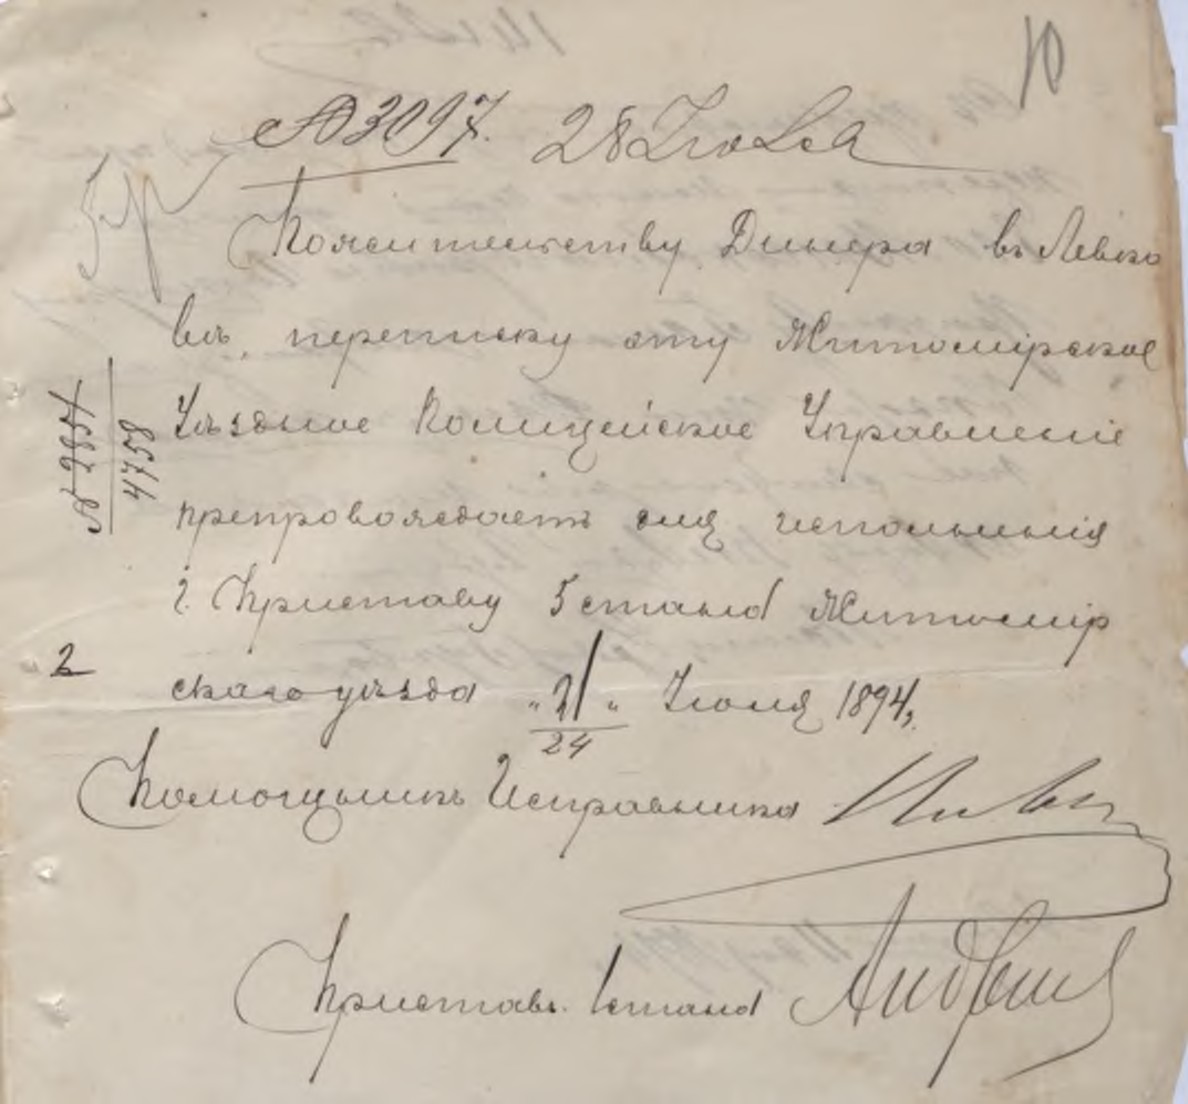 10
№ 3097. 28 Июля
По жительству Динера въ Левко
въ, переписку эту Житомірское
Уѣздное Полицейское Управленіе
препровождаетъ для исполненія
г. Приставу 5 стана Житомір
2
скаго уѣзда „21„ Іюля 1894,
24
Помощникъ Исправника
Приставъ 1 стана
№ 2857
8574